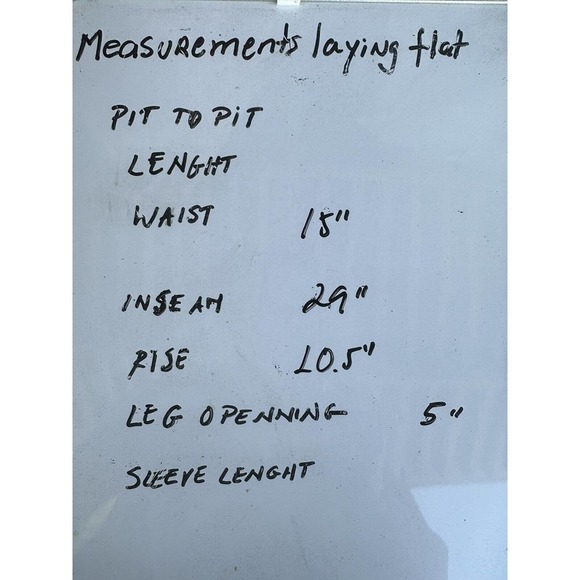 Measurements laying flat
PIT TO PIT
LENGHT
WAIST 15"
INSEAM 29"
RISE 10.5"
LEG OPENNING 5"
SLEEVE LENGHT